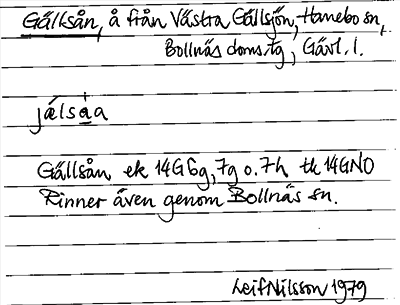 Gällsån, å från Västra Gällsjön, Hanebo sn,
Bollnäs doms.tg, Gävl. l.
jä́lsa̲a
Gällsån ek 14G6g, 7g o. 7h tk 14GNO
Rinner även genom Bollnäs sn.
Leif Nilsson 1979